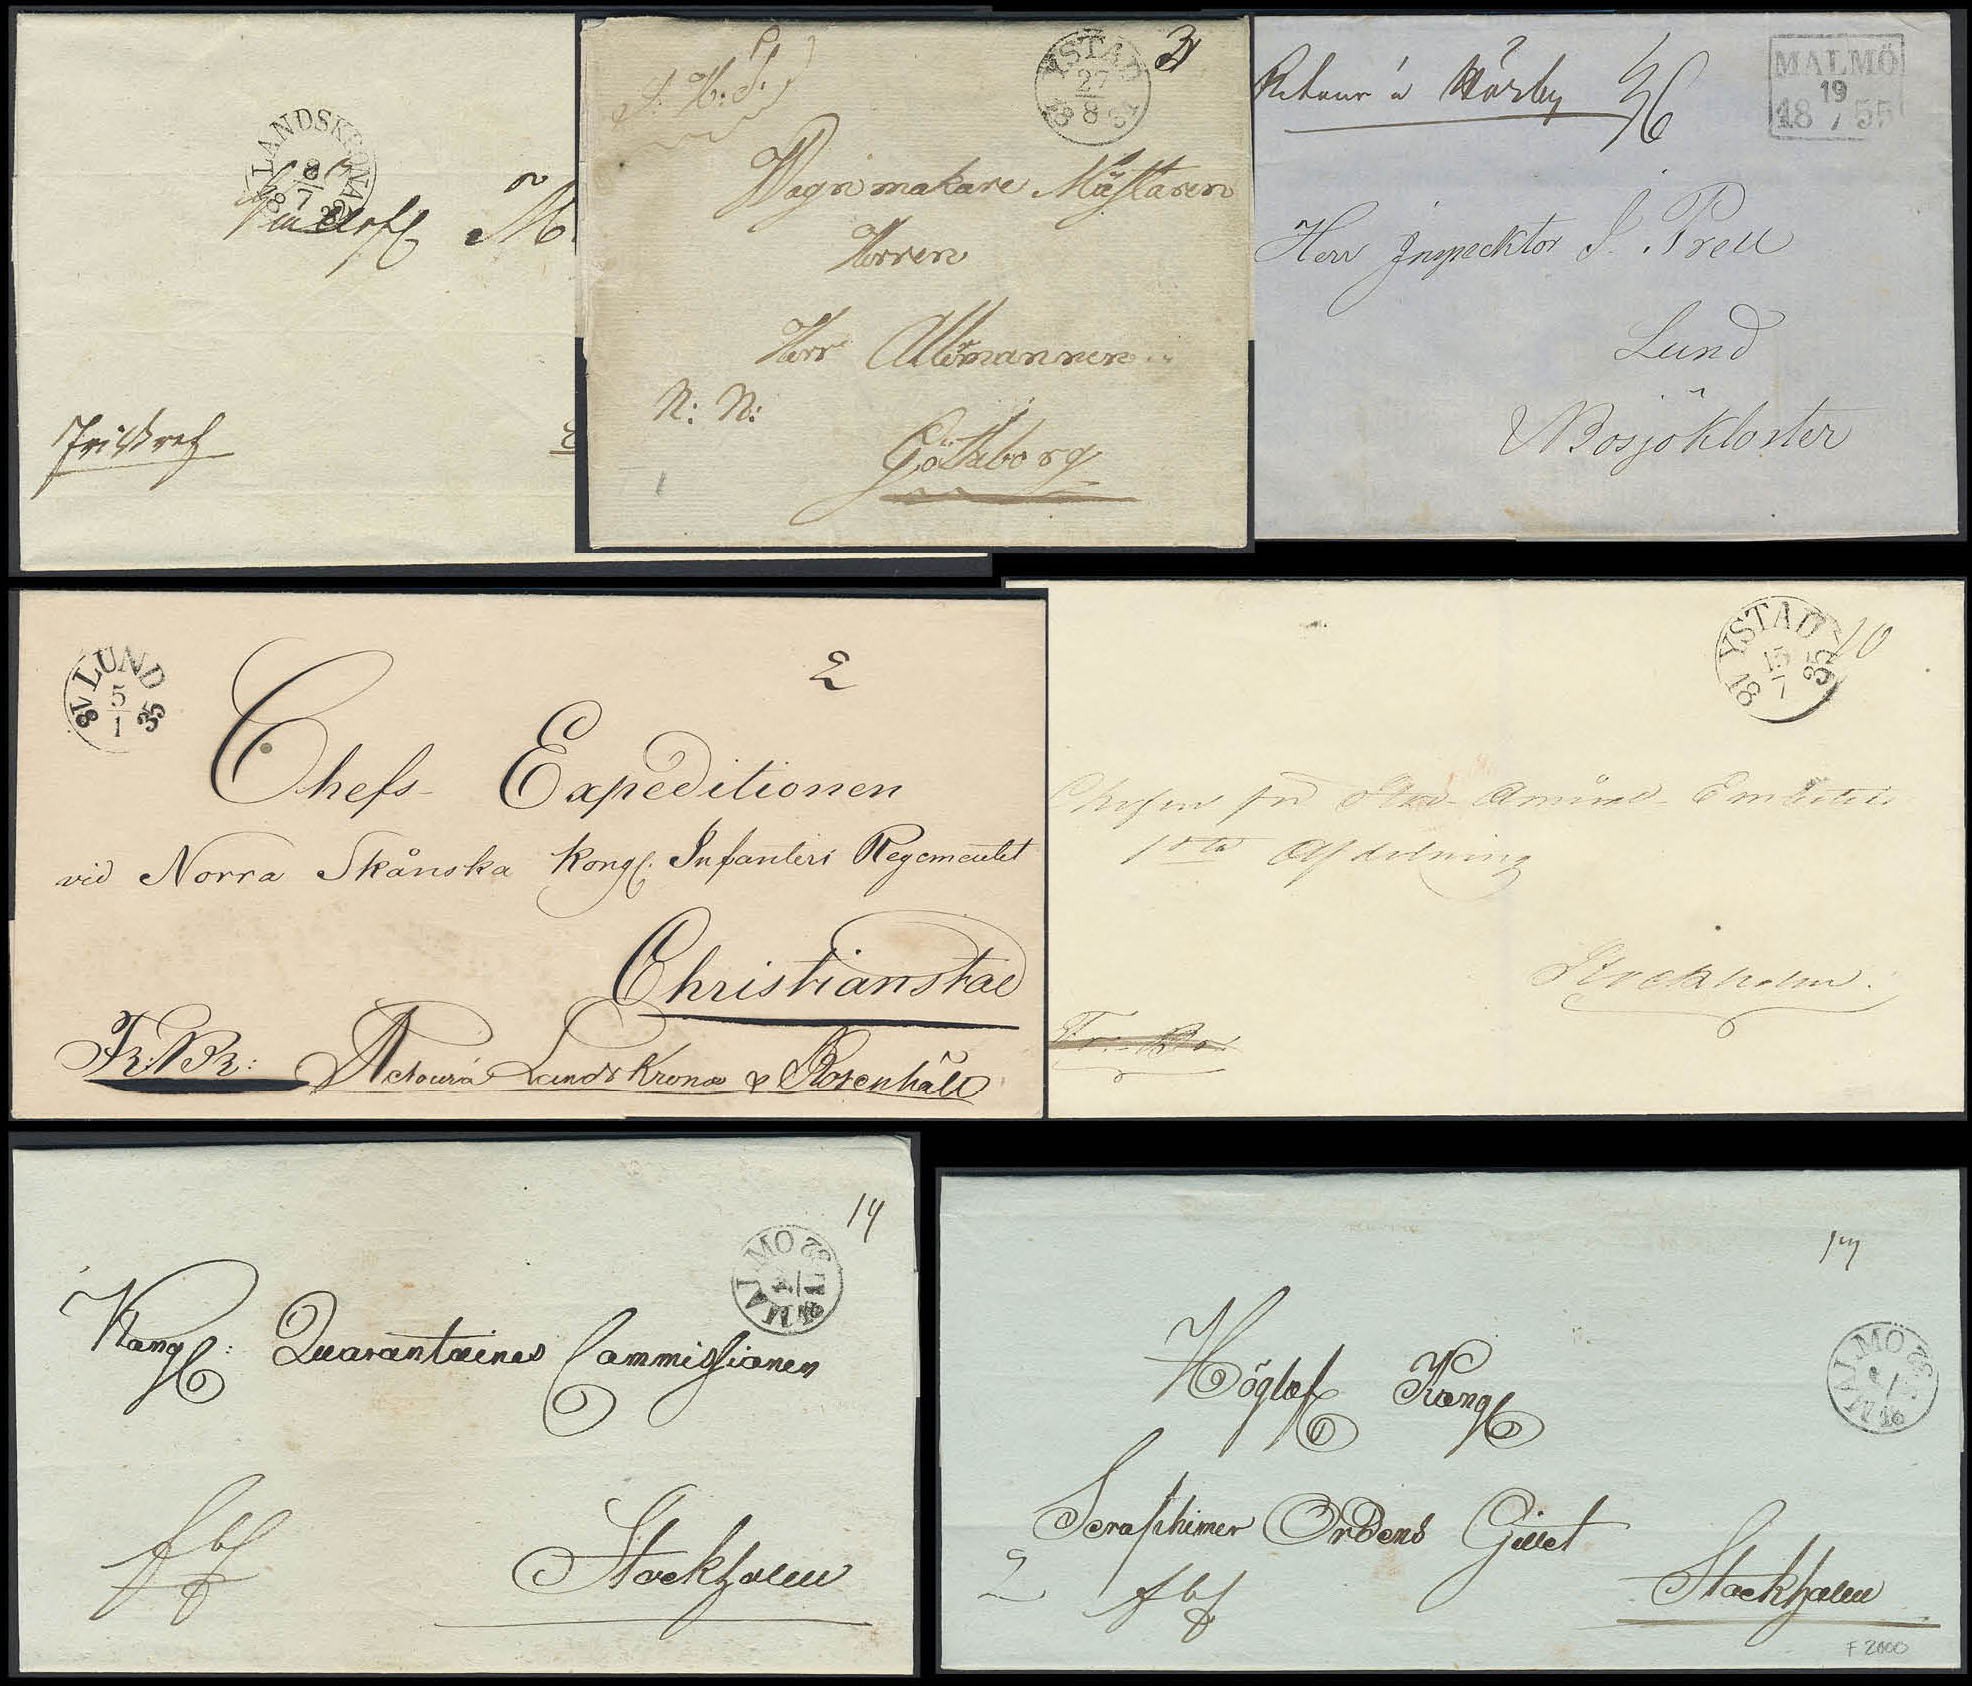 LANDSKRONA
8
1
18 32
YSTAD
27
8
18 31
Wagnmakare Mästaren
Herren
Herr Ålldermannen
N: N:
Götheborg
Retour à Hörby
MALMÖ
19
18 / 55
Herr Inspecktor J. Prell
Lund
Bosjökloster
LUND
5
1
18 35
2
Chefs Expeditionen
vid Norra Skånska Kongl. Infanteri Regementet
Christianstad
Fr: Br:
Retour à Landskrona & Rosenhäll
YSTAD
15
7
18 35
10
1sta Afdelning
Stockholm.
Fr: Br:
14
MALMÖ
Kongl: Quarantaines Commissionen
fbf
Stockholm
MALMÖ
Höglofl Kongl
Seraphimer Ordens Gillet
2
fbf
Stockholm
F 2000